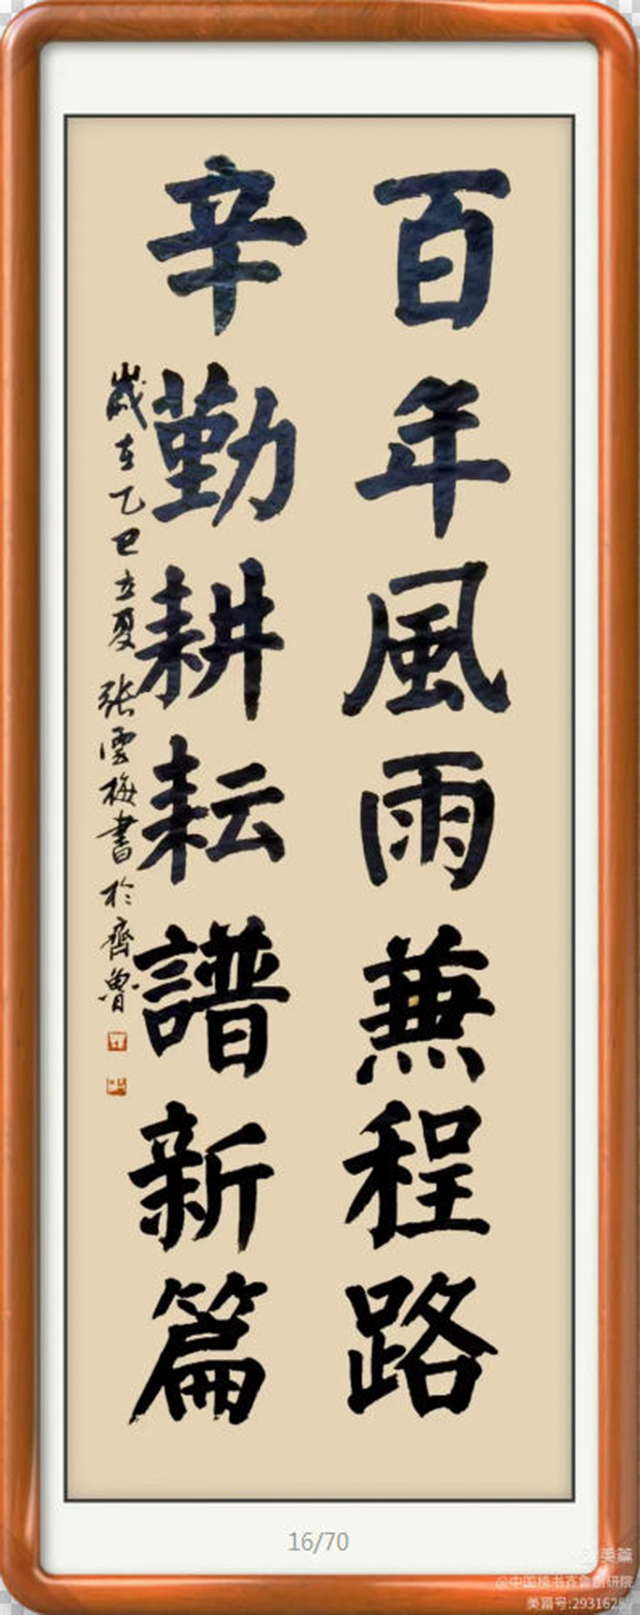 百年風雨兼程路
辛勤耕耘譜新篇
歲在乙巳立夏張雲梅書於齊魯
16/70
美篇
@中国楷书齐鲁研研院